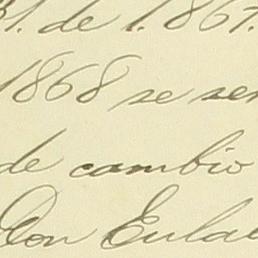 31. de 1.867.
1868 se ser
de cambio
Don Eulal